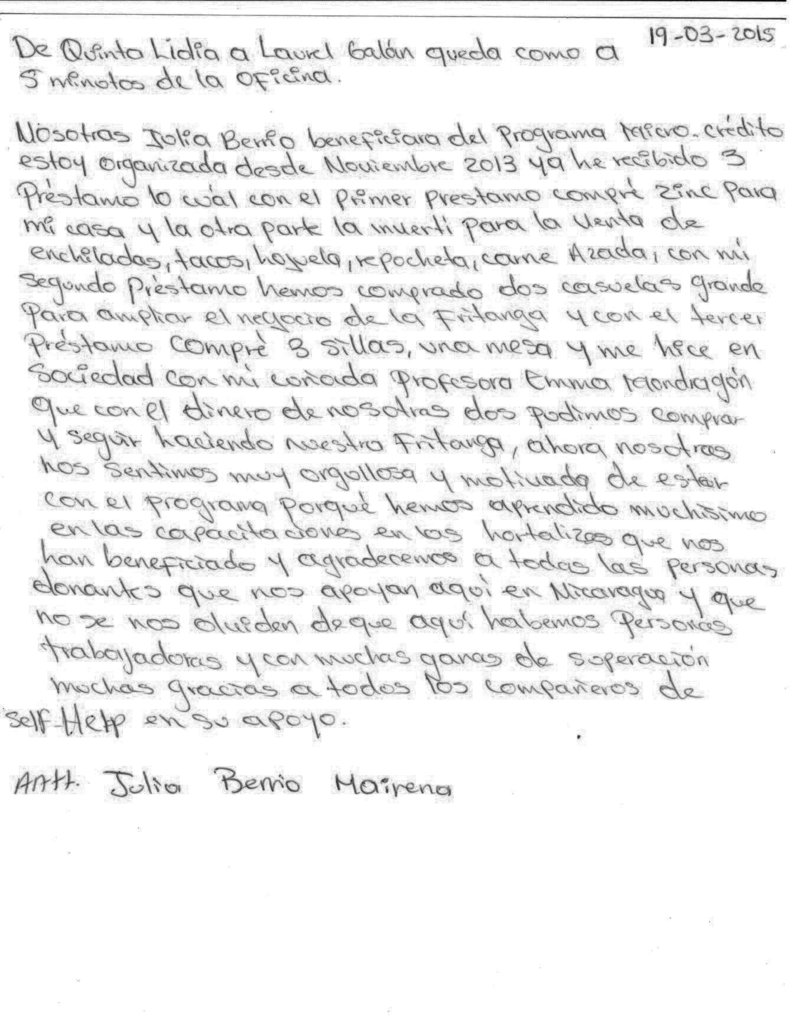 19-03-2015
De Quinta Lidia a Laurel Galán queda como a
5 minutos de la oficina.
Nosotras Julia Berrio beneficiara del Programa Micro-crédito
estoy organizada desde Noviembre 2013 ya he recibido 3
Préstamo lo cuál con el primer prestamo compré zinc para
mi casa y la otra parte la invertí para la venta de
enchiladas, tacos, hojuela, repocheta, carne Azada, con mi
segundo Préstamo hemos comprado dos casuelas grande
Para ampliar el negocio de la Fritanga y con el tercer
Préstamo compré 3 sillas, una mesa y me hice en
Sociedad con mi coñada Profesora Emma Mondragón
que con el dinero de nosotras dos pudimos comprar
y seguir haciendo nuestra Fritanga, ahora nosotras
nos sentimos muy orgollosa y motivada de estar
con el programa porqué hemos aprendido muchísimo
en las capacitaciones en las hortalizas que nos
han beneficiado y agradecemos a todas las personas
donantes que nos apoyan aquí en Nicaragua y que
no se nos oluiden de que aquí habemos Personas
trabajadoras y con muchas ganas de superación
muchas gracias a todos los compañeros de
Self-Help en su apoyo.
Antt. Julia Berrio Mairena